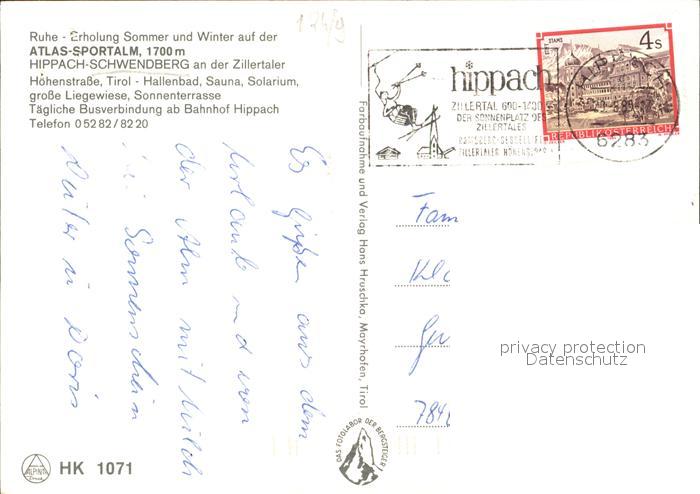 Ruhe - Erholung Sommer und Winter auf der
ATLAS-SPORTALM, 1700 m
HIPPACH-SCHWENDBERG an der Zillertaler
Höhenstraße, Tirol - Hallenbad, Sauna, Solarium,
große Liegewiese, Sonnenterrasse
Tägliche Busverbindung ab Bahnhof Hippach
Telefon 0 52 82 / 82 20
Es grüßen aus dem
Urlaub und von
der Alm mit Milch
Sonnenschein
Dieter u Doris
Farbaufnahme und Verlag Hans Hruschka, Mayrhofen, Tirol
hippach
ZILLERTAL 600-
DER SONNENPLATZ DES
ZILLERTALES
ZILLERTALER HÖHENSTR
STAMS
4 S
REPUBLIK ÖSTERREICH
6283
Fam
Gu
784
privacy protection
Datenschutz
DAS FOTOLABOR DER BERGSTEIGER
ALPINA
HK 1071